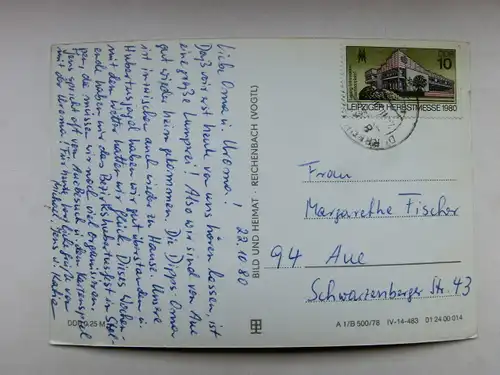 Liebe Oma u. Uroma! 22.10.80
Daß wir erst heute von uns hören lassen, ist
eine große Lumperei! Also wir sind von Aue
gut wieder heim gekommen. Die Dipps. Oma
ist inzwischen auch wieder zu Hause. Unsre
Hubertusjagd haben wir gut überstanden u.
mit dem Wetter hatten wir Glück. Dieses Wochen-
ende haben wir das Bezirkshubertusfest in
gen, da müssen wir noch viel organisieren.
Jens spricht oft von Auebesuch u. dem Kartenspiel
mit der Uroma! Für heute herzliche Grüße von
Michael, Jens u.
DDR 0,25 M
BILD UND HEIMAT · REICHENBACH (VOGTL)
DDR
10
LEIPZIGER HERBSTMESSE 1980
Frau
Margarethe Fischer
94 Aue
Schwarzenberger Str. 43
A 1/B 500/78 IV-14-483 01 24 00 014